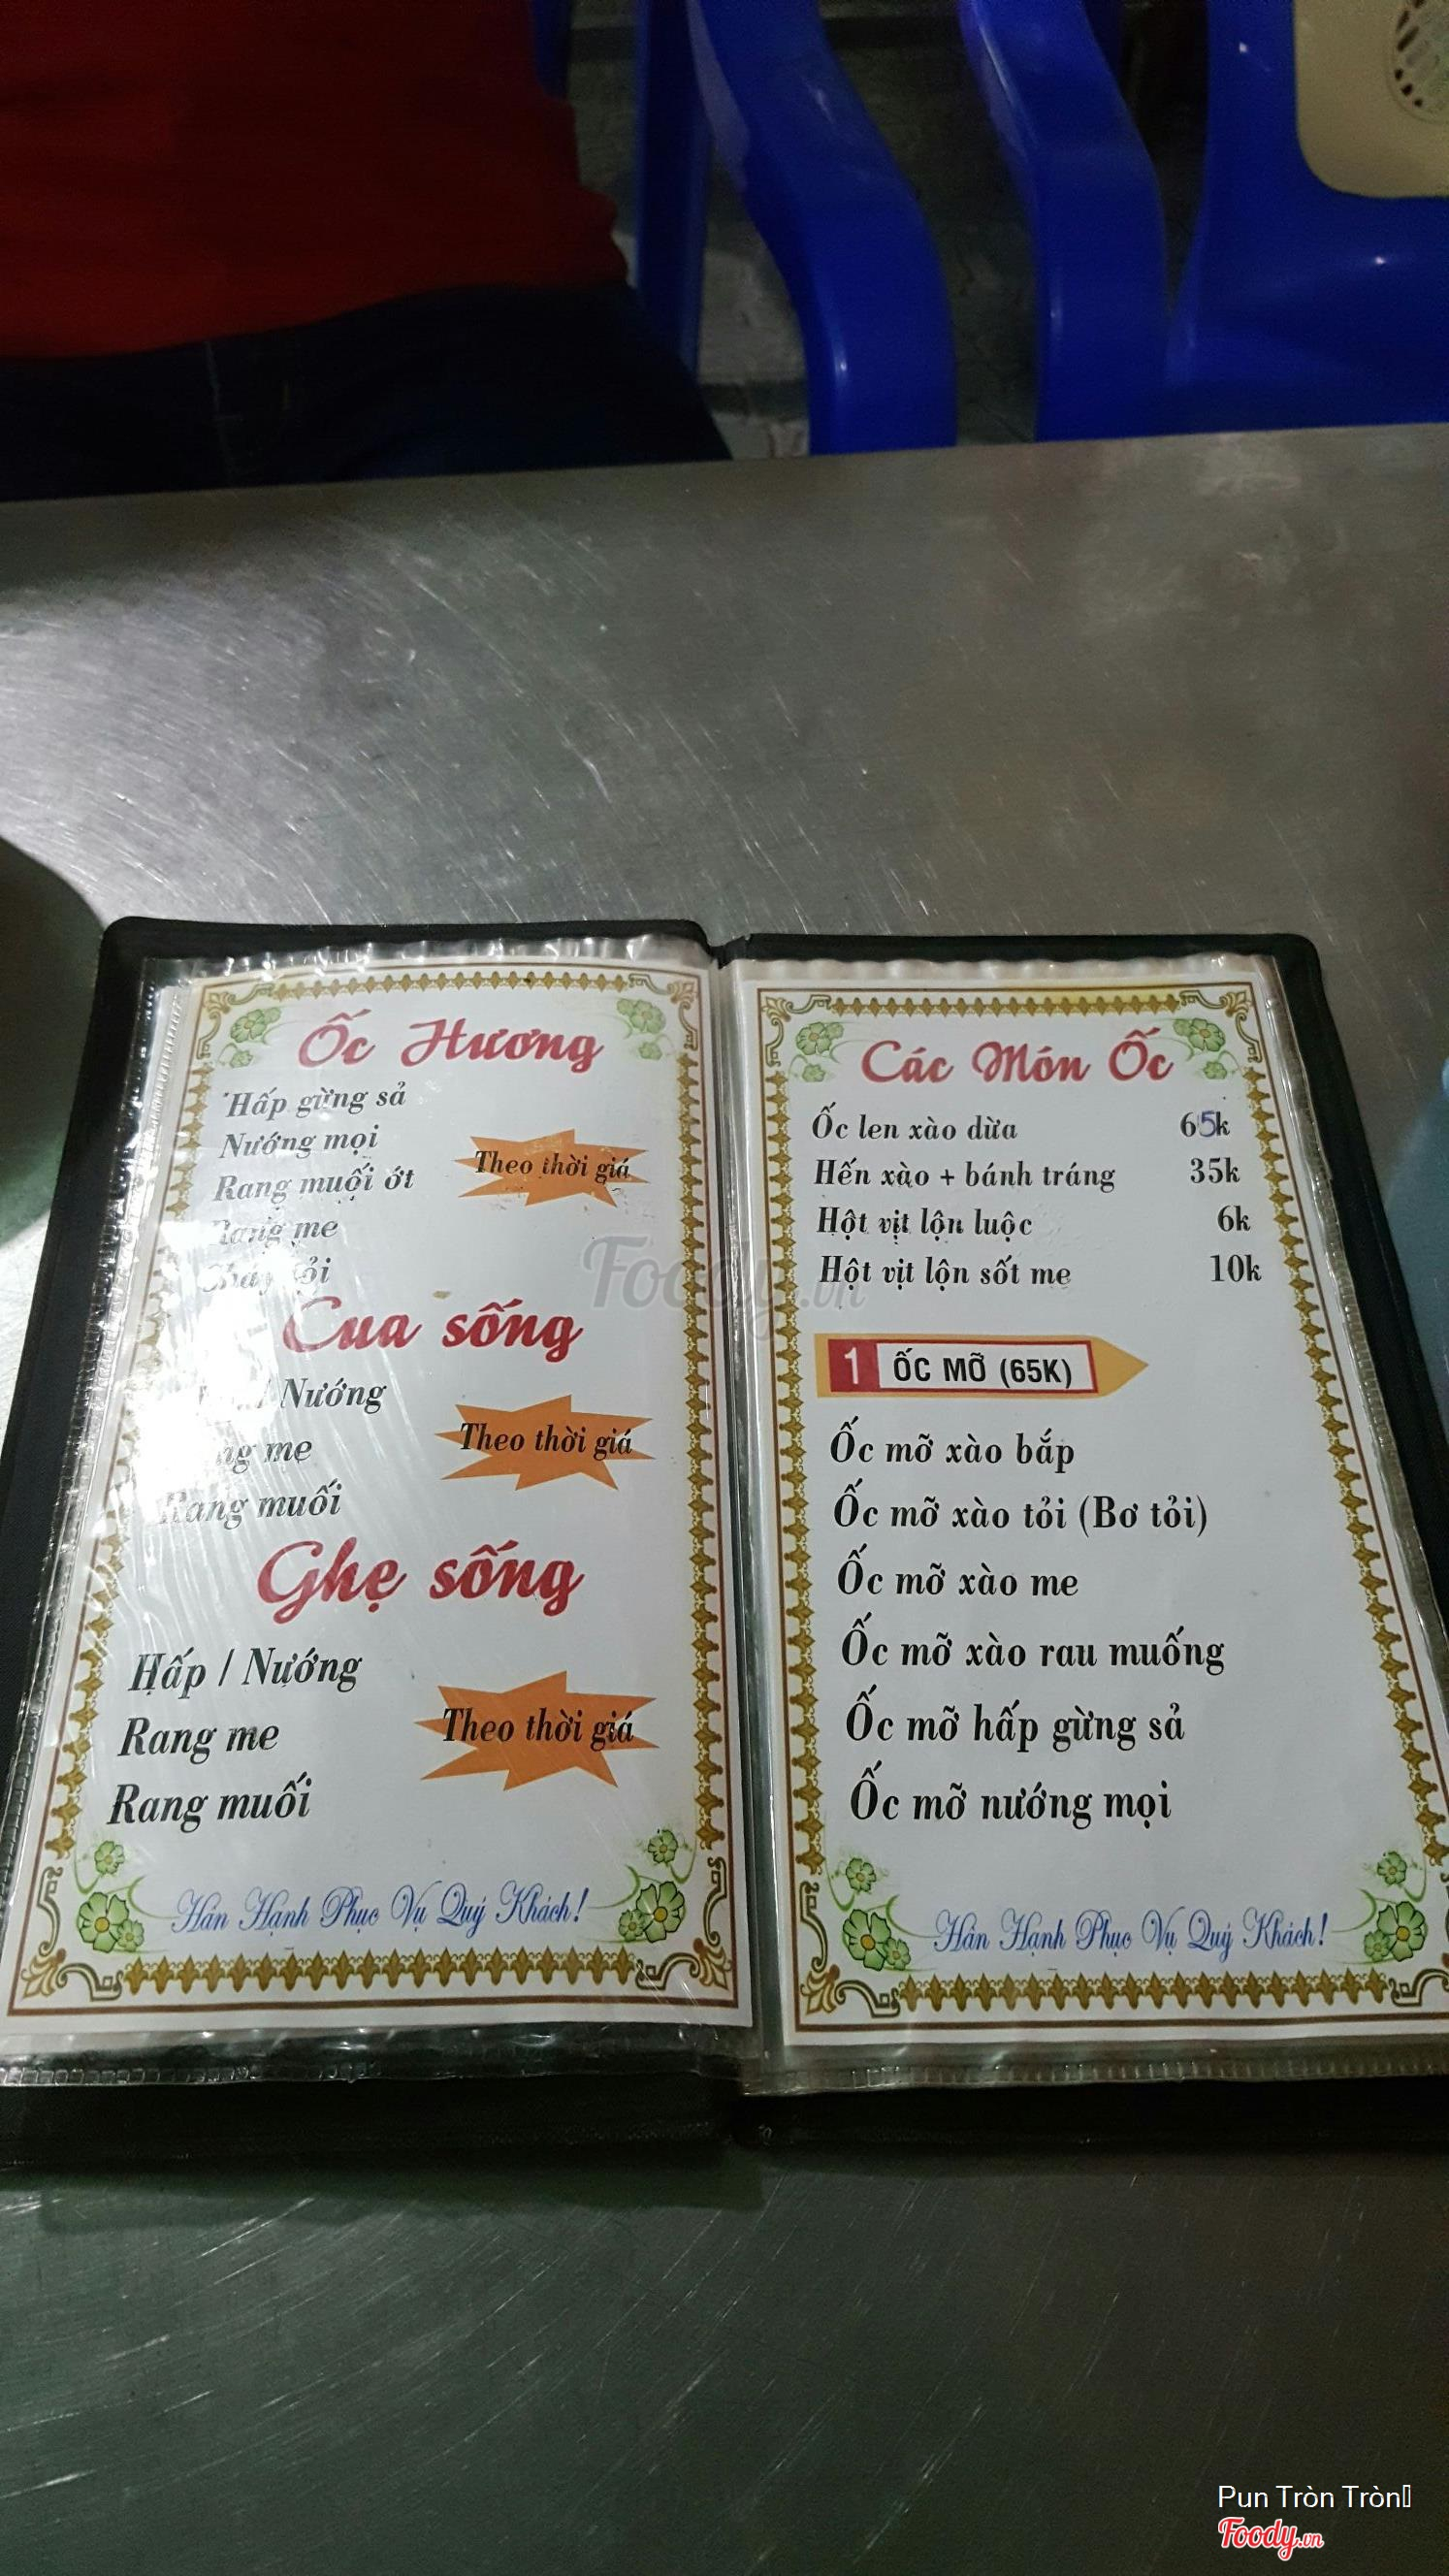 Ốc Hương
Hấp gừng sả
Nướng mọi
Rang muối ớt
Rang me
Theo thời giá
Cua sống
Nướng
me
Rang muối
Theo thời giá
Ghẹ sống
Hấp / Nướng
Rang me
Rang muối
Theo thời giá
Hân Hạnh Phục Vụ Quý Khách!
Các Món Ốc
Ốc len xào dừa 65k
Hến xào + bánh tráng 35k
Hột vịt lộn luộc 6k
Hột vịt lộn sốt me 10k
1 ỐC MỠ (65K)
Ốc mỡ xào bắp
Ốc mỡ xào tỏi (Bơ tỏi)
Ốc mỡ xào me
Ốc mỡ xào rau muống
Ốc mỡ hấp gừng sả
Ốc mỡ nướng mọi
Hân Hạnh Phục Vụ Quý Khách!
Foody.vn
Pun Tròn Tròn
Foody.vn